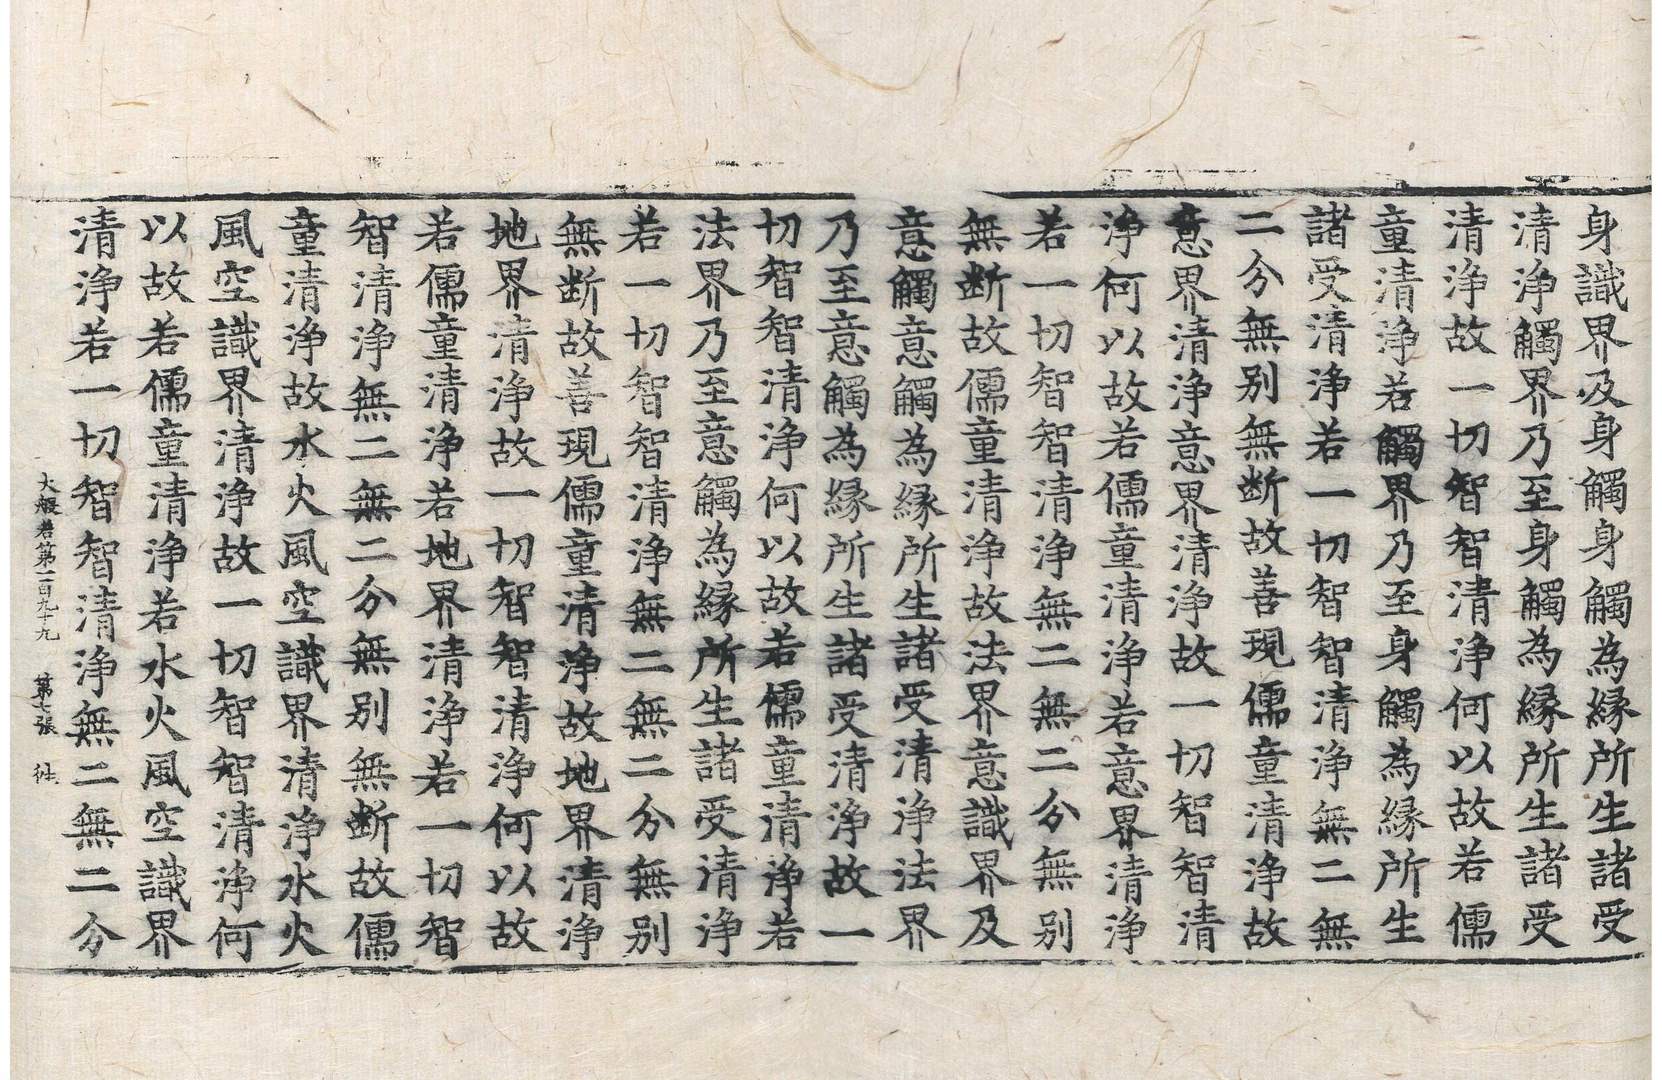 身識界及身觸身觸為縁所生諸受
清淨觸界乃至身觸為縁所生諸受
清淨故一切智智清淨何以故若儒
童清淨若觸界乃至身觸為縁所生
諸受清淨若一切智智清淨無二無
二分無别無断故善現儒童清淨故
意界清淨意界清淨故一切智智清
淨何以故若儒童清淨若意界清淨
若一切智智清淨無二無二分無别
無断故儒童清淨故法界意識界及
意觸意觸為縁所生諸受清淨法界
乃至意觸為縁所生諸受清淨故一
切智智清淨何以故若儒童清淨若
法界乃至意觸為縁所生諸受清淨
若一切智智清淨無二無二分無别
無断故善現儒童清淨故地界清淨
地界清淨故一切智智清淨何以故
若儒童清淨若地界清淨若一切智
智清淨無二無二分無别無断故儒
童清淨故水火風空識界清淨水火
風空識界清淨故一切智智清淨何
以故若儒童清淨若水火風空識界
清淨若一切智智清淨無二無二分
大般若第二百九十九 第七張